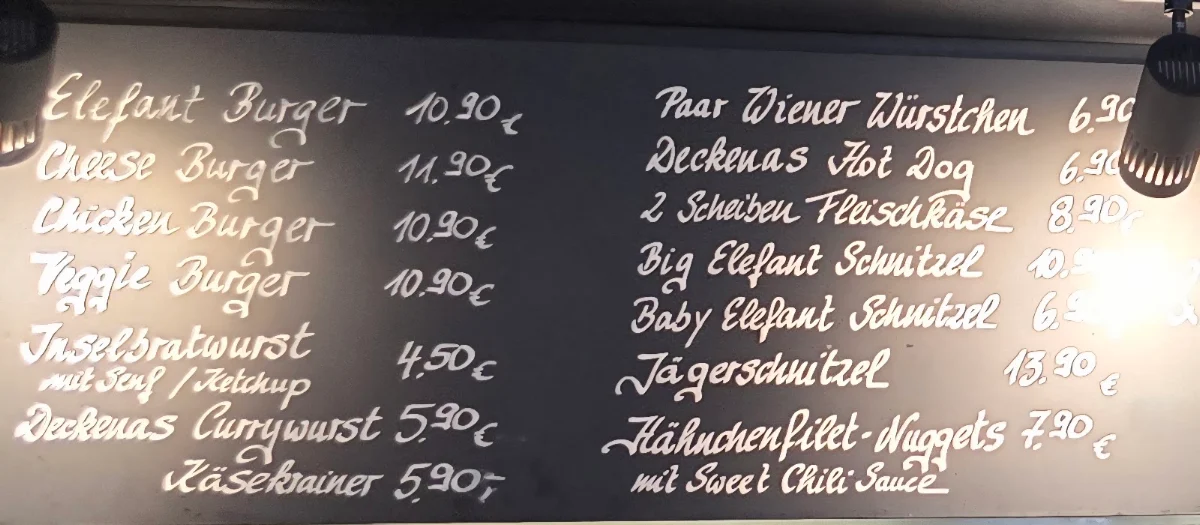 Elefant Burger 10.90€
Cheese Burger 11.90€
Chicken Burger 10.90€
Veggie Burger 10.90€
Inselbratwurst 4.50€
mit Senf / Ketchup
Deckenas Currywurst 5.90€
Käsekrainer 5.90,-
Paar Wiener Würstchen 6.90
Deckenas Hot Dog 6.90
2 Scheiben Fleischkäse 8.90€
Big Elefant Schnitzel
Baby Elefant Schnitzel
Jägerschnitzel 13.90€
Hähnchenfilet-Nuggets 7.90€
mit Sweet Chili Sauce